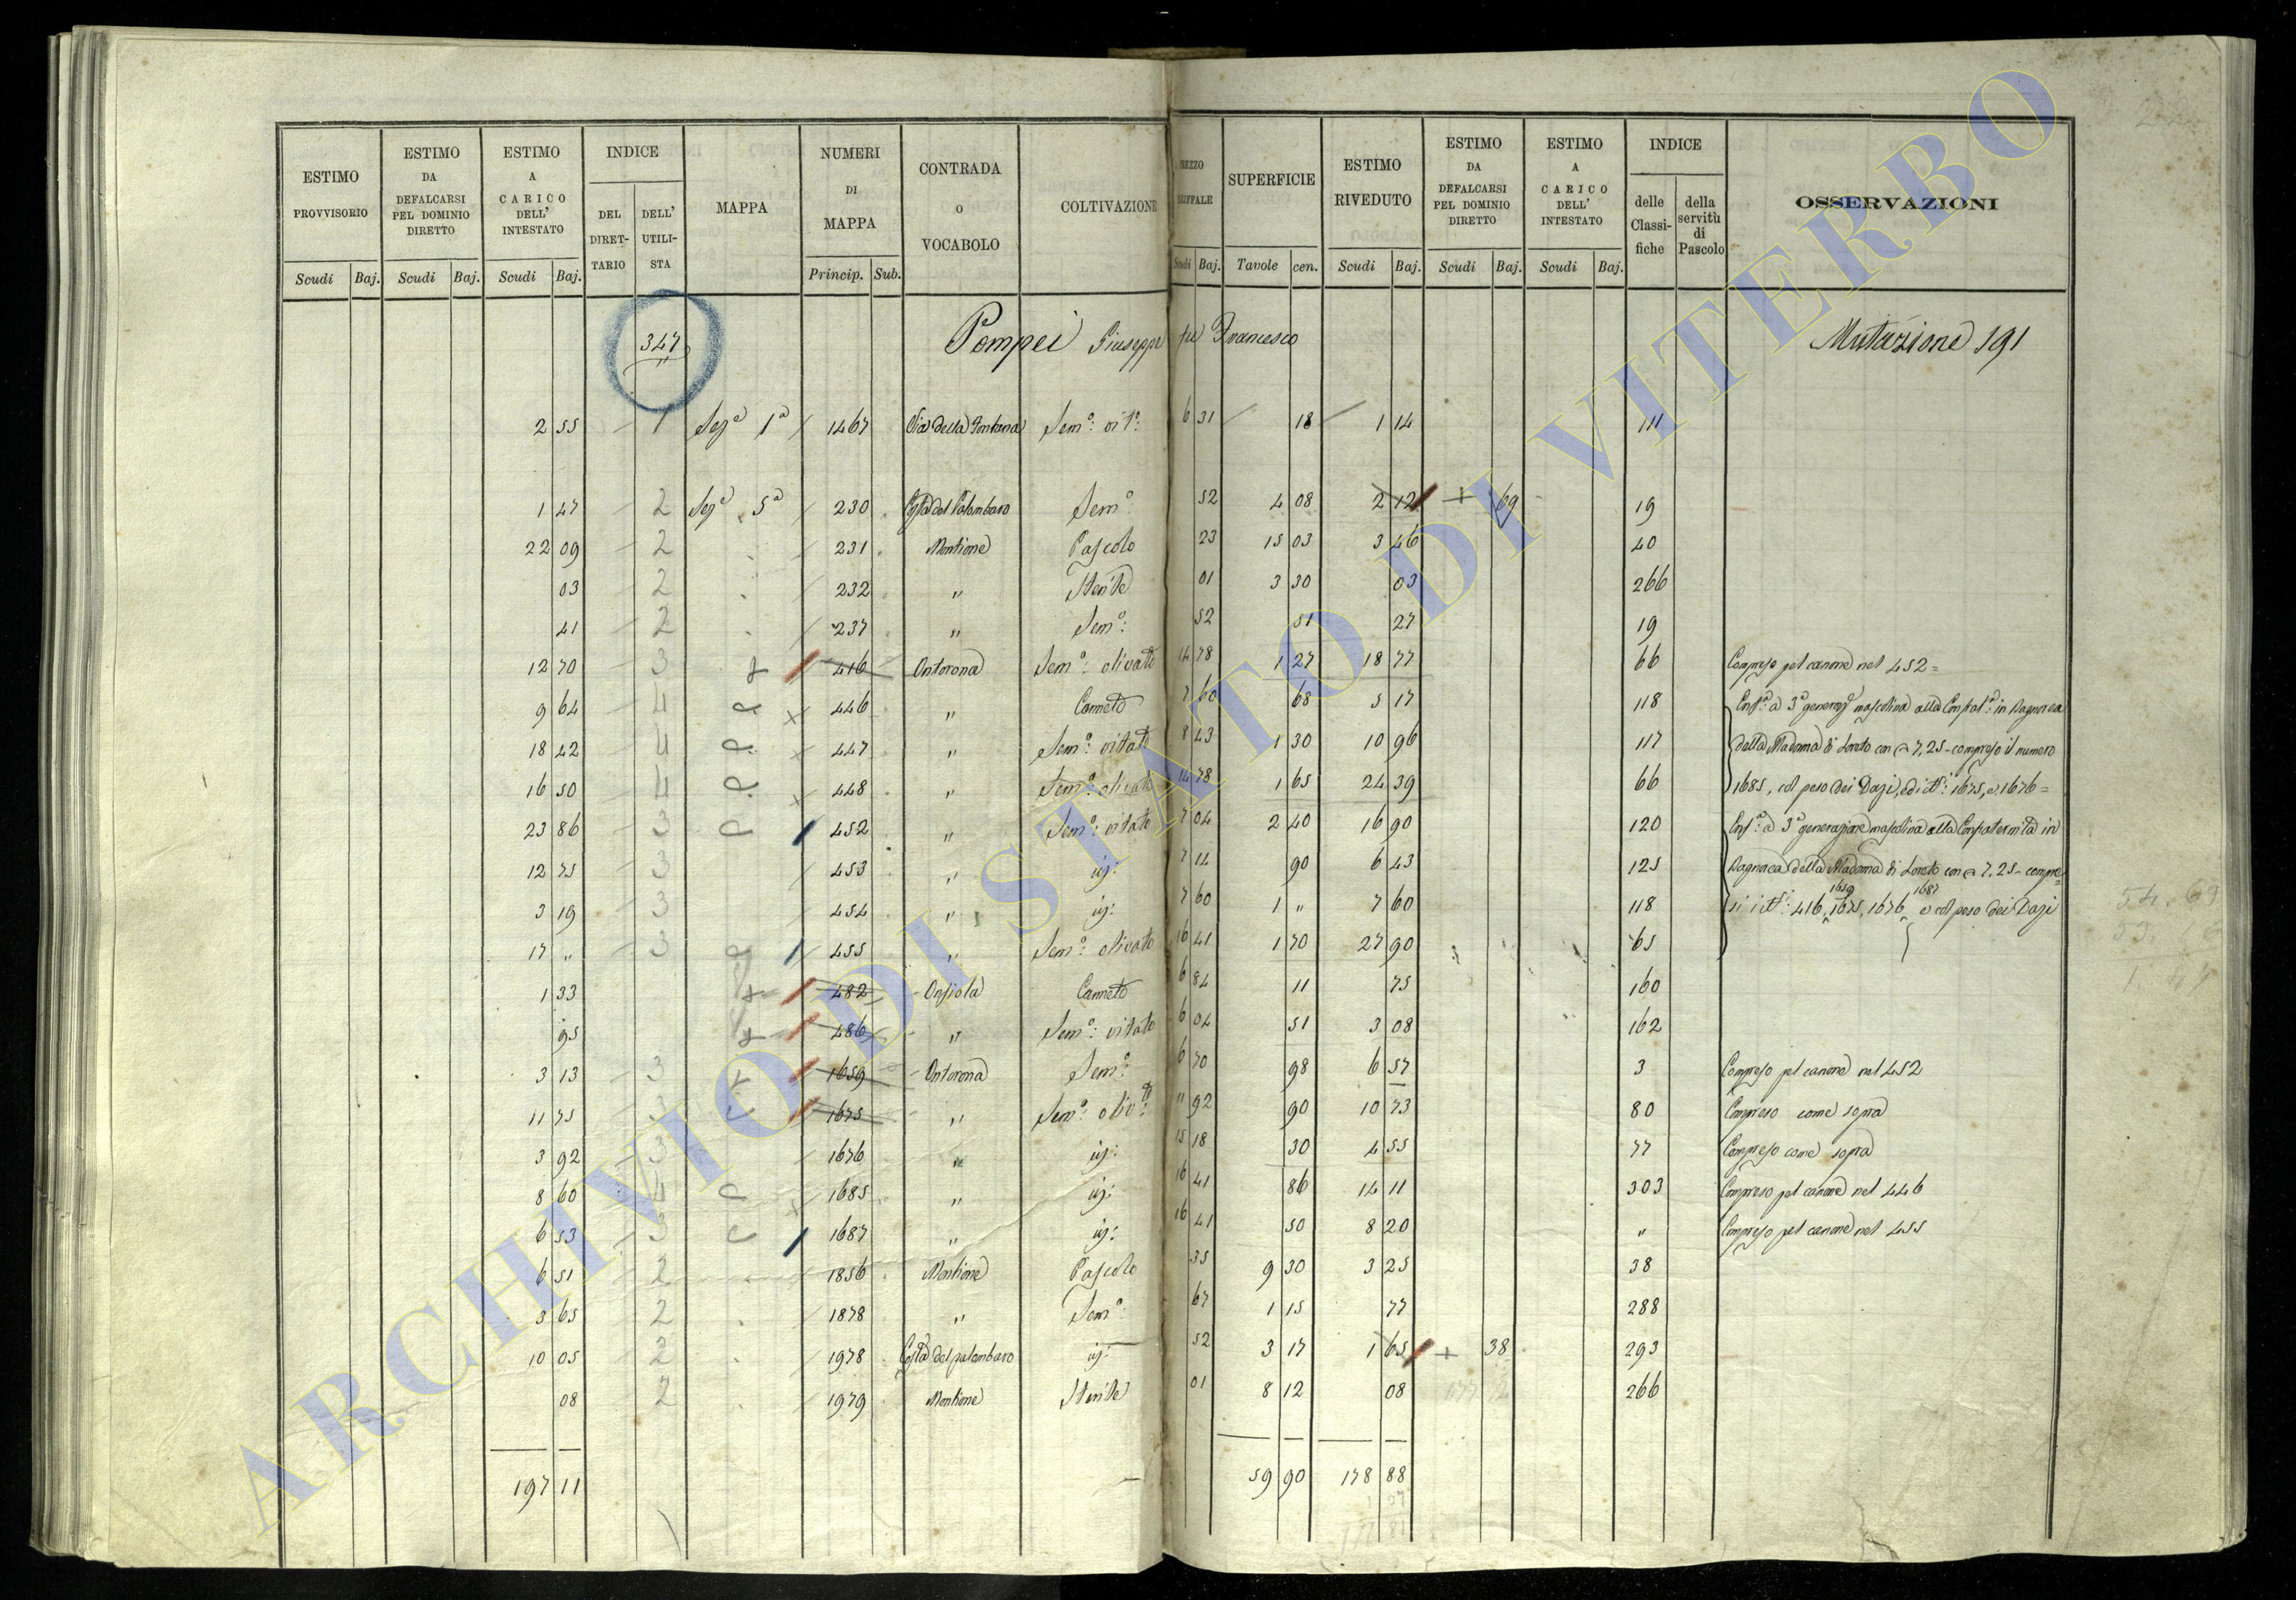 ESTIMO PROVVISORIO Scudi Baj.
ESTIMO DA DEFALCARSI PEL DOMINIO DIRETTO Scudi Baj.
ESTIMO A CARICO DELL' INTESTATO Scudi Baj.
INDICE DEL DIRET-TARIO DELL' UTILI-STA
MAPPA
NUMERI DI MAPPA Princip. Sub.
CONTRADA O VOCABOLO
COLTIVAZIONE
Scudi Baj.
SUPERFICIE Tavole cen.
ESTIMO RIVEDUTO Scudi Baj.
ESTIMO DA DEFALCARSI PEL DOMINIO DIRETTO Scudi Baj.
ESTIMO A CARICO DELL' INTESTATO Scudi Baj.
INDICE delle Classi-fiche della servitù di Pascolo
OSSERVAZIONI
347 Pompei Giuseppe fu Francesco Mutazione 191
2 55 1 Sezª 1ª 1467 Via della Fontana Semº: vitº: 6 31 18 1 14 111
1 47 2 Sezª 5ª 230 Costa del Palombaro Semº 52 4 08 2 12 + 69 19
22 09 2 231 Montione Pascolo 23 15 03 3 46 40
03 2 232 " Sterile 01 3 30 03 266
41 2 237 " Semº: 52 51 27 19
12 70 3 416 Ontorona Semº: olivato 14 78 1 27 18 77 66 Compreso pel canone nel 452=
9 64 4 446 " Canneto 7 60 68 5 17 118 Enfª: a 3ª generazº mascolina alla Confratª: in Bagnorea
18 42 4 447 " Semº: vitato 8 43 1 30 10 96 117 della Madonna di Loreto con 7,25 - compreso il numero
16 50 4 448 " Semº: olivato 14 78 1 65 24 39 66 1685, col peso dei Dazi, ed itⁱ: 1675, e 1676=
23 86 3 452 " Semº: vitato 7 04 2 40 16 90 120 Enfª: a 3ª generazione mascolina alla Confraternita in
12 75 3 453 " id: 7 14 90 6 43 125 Bagnorea della Madonna di Loreto con 7,25 - compre=
3 19 3 454 " id: 7 60 1 " 7 60 118 si itⁱ: 416, 1659 1675, 1676, 1687 e col peso dei Dazi
17 " 3 455 " Semº: olivato 16 41 1 70 27 90 65
1 33 482 Onsiola Canneto 6 84 11 75 160
95 486 " Semº: vitato 6 04 51 3 08 162
3 13 3 1659 Ontorona Semº: 6 70 98 6 57 3 Compreso pel canone nel 452
11 75 3 1675 " Semº: olivtº " 92 90 10 73 80 Compreso come sopra
3 92 3 1676 " id: 15 18 30 4 55 77 Compreso come sopra
8 60 4 1685 " id: 16 41 86 14 11 303 Compreso pel canone nel 446
6 53 3 1687 " id: 16 41 50 8 20 " Compreso pel canone nel 455
6 51 2 1856 Montione Pascolo 35 9 30 3 25 38
3 65 2 1878 " Semº: 67 1 15 77 288
10 05 2 1978 Costa del palombaro id: 52 3 17 1 65 + 38 293
08 2 1979 Montione Sterile 01 8 12 08 266
197 11 59 90 178 88
ARCHIVIO DI STATO DI VITERBO